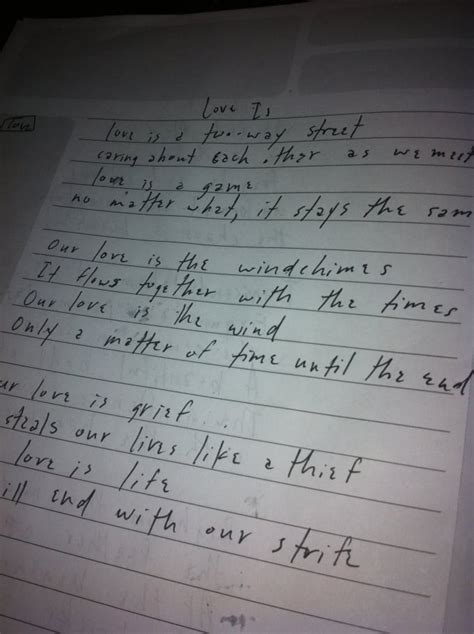 Love Is
love is a two-way street
caring about each other as we meet
love is a game
no matter what, it stays the sam
Our love is the windchimes
It flows together with the times
Our love is the wind
Only a matter of time until the end
ur love is grief.
steals our lives like a thief
love is life
ill end with our strife